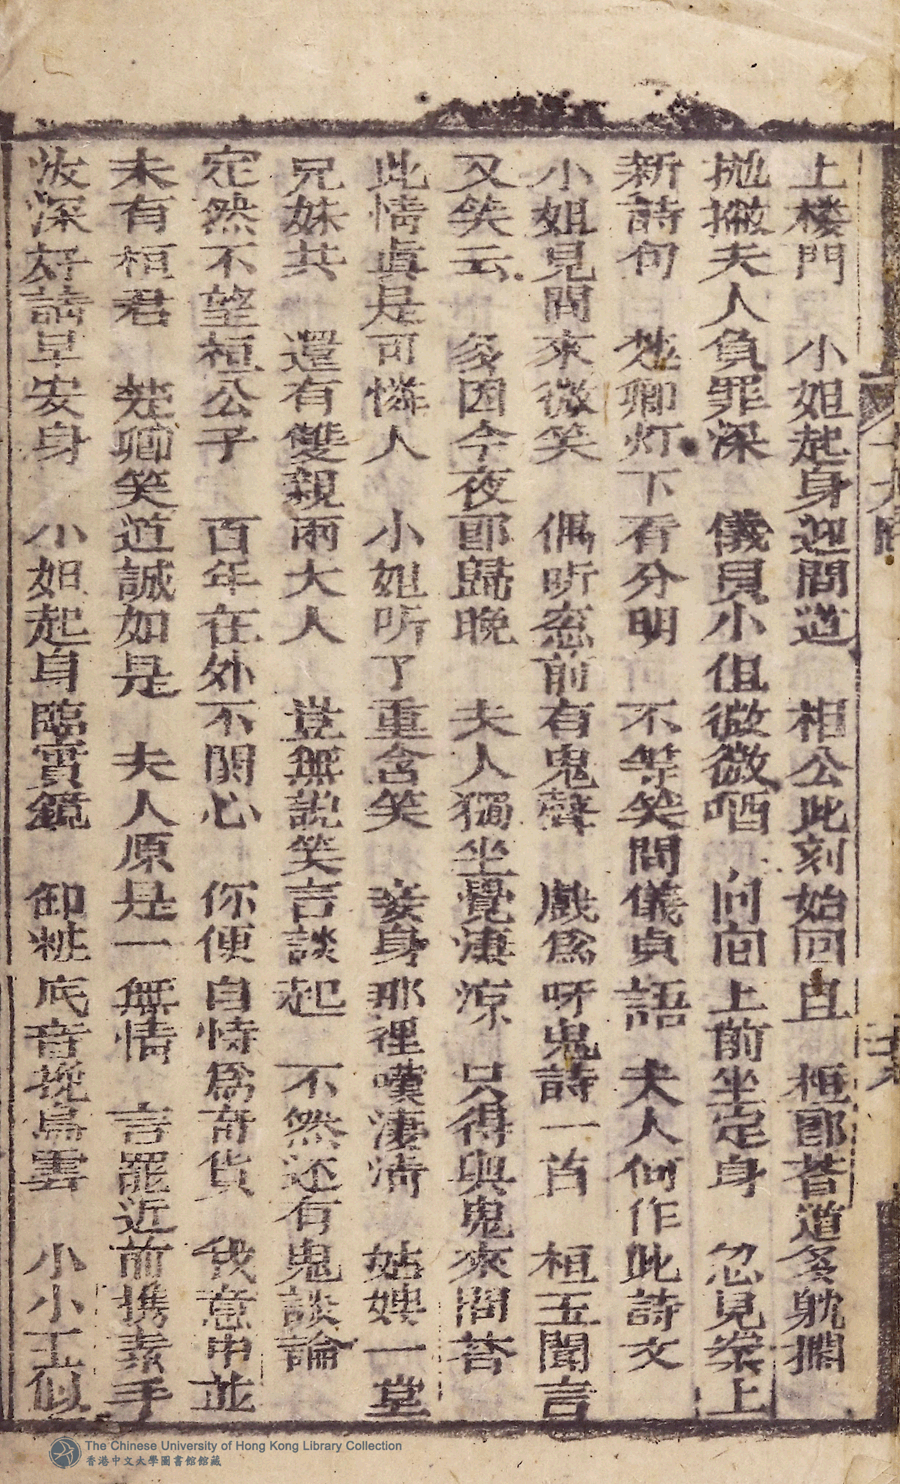 上楼門　小姐起身迎問道　相公此刻始回且　桓郎荅道多躭擱
抛撇夫人負罪深　儀貝小但微微哂　向向上前坐定身　忽見案上
新詩句　楚卿灯下看分明　不等笑問儀貞語　夫人何作此詩文
小姐見問來微笑　偶听窓前有鬼聲　戲為呀鬼詩一首　桓玉聞言
又笑云　多因今夜郎歸晚　夫人獨坐覺凄凉　只得與鬼來問荅
此情眞是可憐人　小姐听了重含笑　妾身那裡嘆淒清　姑嫂一堂
兄妹共　還有雙親兩大人　豈無説笑言談起　不然还有鬼談論
定然不望桓公子　百年在外不関心　你便自恃為奇貨　我意中並
未有桓君　楚卿笑道誠如是　夫人原是一無情　言罷近前携素手
夜深好請早安身　小姐起身臨寶鏡　卸粧底音挽烏雲　小小玉似
The Chinese University of Hong Kong Library Collection
香港中文大學圖書館館藏